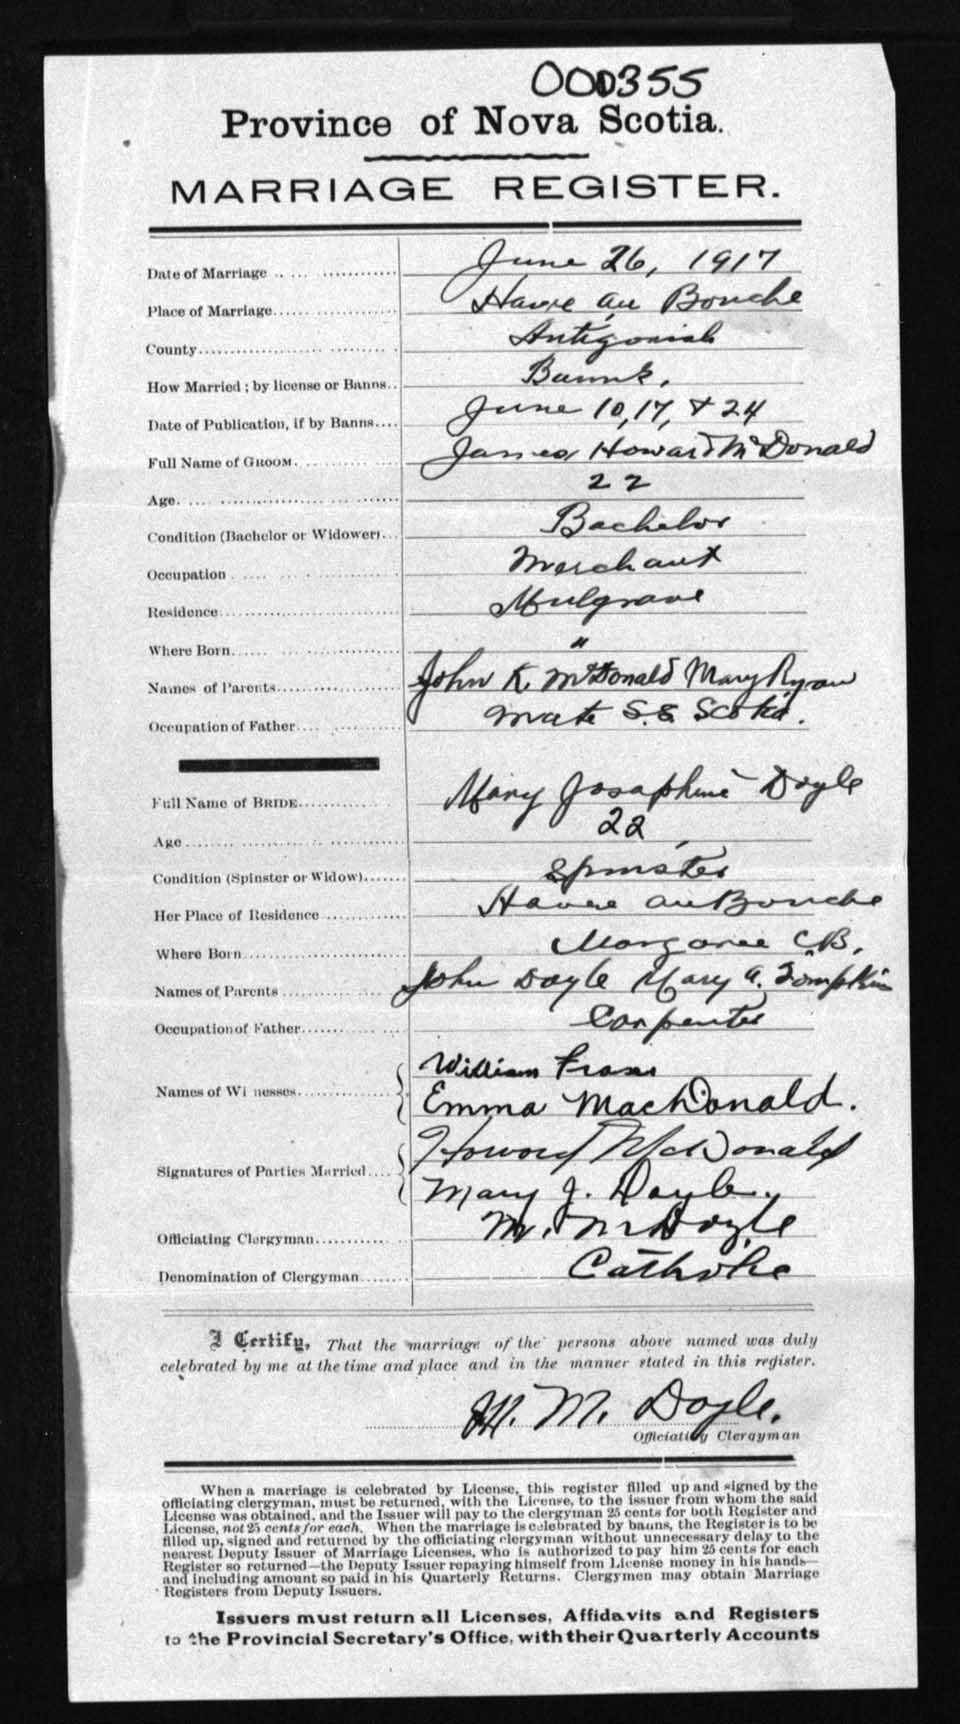 000355
Province of Nova Scotia.
MARRIAGE REGISTER.
Date of Marriage June 26, 1917
Place of Marriage Havre au Bouche
County Antigonish
How Married; by license or Banns Banns.
Date of Publication, if by Banns June 10, 17, & 24
Full Name of GROOM James Howard McDonald
Age 22
Condition (Bachelor or Widower) Bachelor
Occupation Merchant
Residence Mulgrave
Where Born "
Names of Parents John K. McDonald Mary Ryan
Occupation of Father Mate S.S. Scotia.
Full Name of BRIDE Mary Josaphine Doyle
Age 22
Condition (Spinster or Widow) Spinster
Her Place of Residence Havre au Bouche
Where Born Margaree C.B.
Names of Parents John Doyle Mary A. Tompkins
Occupation of Father Carpenter
Names of Witnesses William Fraser
Emma MacDonald.
Signatures of Parties Married Howard McDonald
Mary J. Doyle.
Officiating Clergyman M. M Doyle
Denomination of Clergyman Catholic
I Certify, That the marriage of the persons above named was duly
celebrated by me at the time and place and in the manner stated in this register.
M. M. Doyle.
Officiating Clergyman
When a marriage is celebrated by License, this register filled up and signed by the
officiating clergyman, must be returned, with the License, to the issuer from whom the said
License was obtained, and the Issuer will pay to the clergyman 25 cents for both Register and
License, not 25 cents for each. When the marriage is celebrated by banns, the Register is to be
filled up, signed and returned by the officiating clergyman without unnecessary delay to the
nearest Deputy Issuer of Marriage Licenses, who is authorized to pay him 25 cents for each
Register so returned—the Deputy Issuer repaying himself from License money in his hands—
and including amount so paid in his Quarterly Returns. Clergymen may obtain Marriage
Registers from Deputy Issuers.
Issuers must return all Licenses, Affidavits and Registers
to the Provincial Secretary's Office, with their Quarterly Accounts